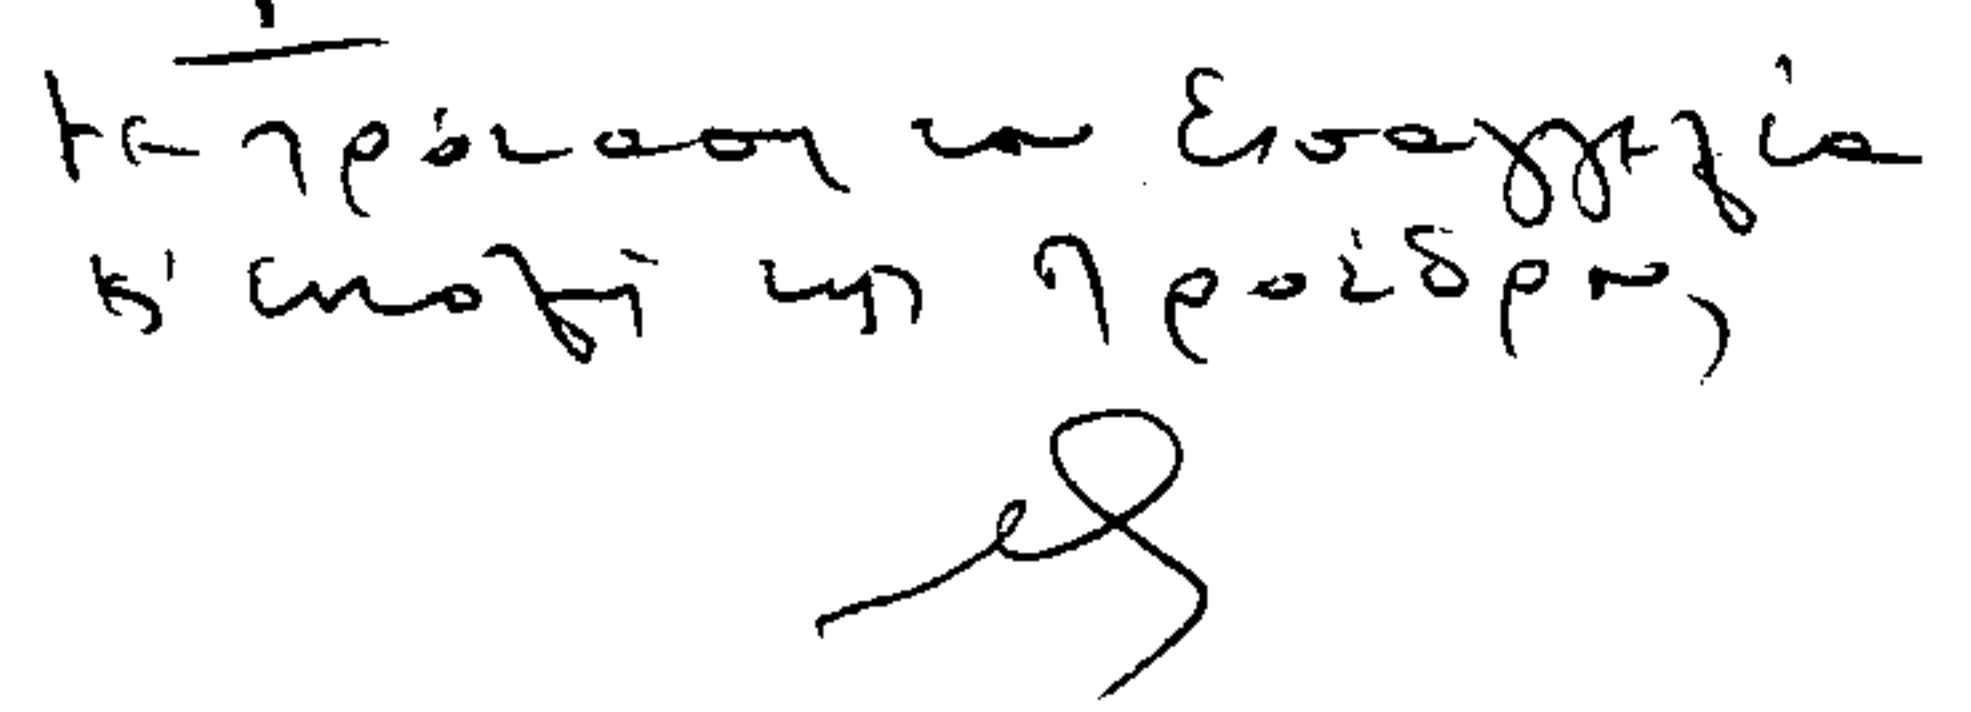 Με πρόταση του Εισαγγελέα
κ' εντολή της Προέδρου,